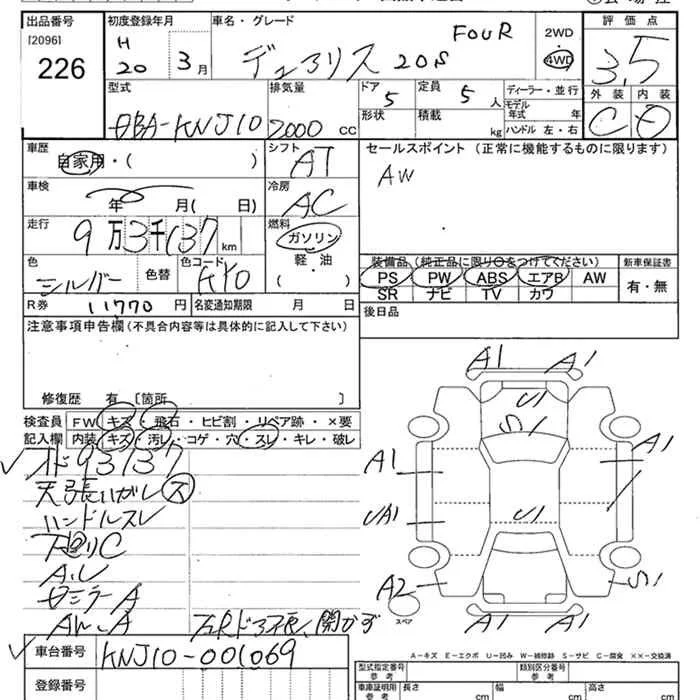 出品番号 初度登録年月 車名・グレード 2WD 評価点
[2096] H FOUR
226 20 3月 デュアリス 20S 4WD 3.5
型式 排気量 ドア 5 定員 5人 ディーラー・並行 外装 内装
DBA-KNJ10 2000 cc 形状 積載 kg モデル年式 年 C
ハンドル 左・右
車歴 シフト セールスポイント (正常に機能するものに限ります)
自家用・( ) AT AW
車検 冷房
年 月( 日) AC
走行 燃料
9万3千137km ガソリン
色 色替 色コード 軽・油 装備品 (純正品に限り○をつけてください) 新車保証書
シルバー KY0 ( ) PS PW ABS エアB AW 有・無
SR ナビ TV カワ
R券 11770円 名変通知期限 月 日 後日品
注意事項申告欄(不具合内容等は具体的に記入して下さい)
修復歴 有 [箇所 ]
検査員 FW キズ・飛石・ヒビ割・リペア跡・×要
記入欄 内装 キズ・汚レ・コゲ・穴・スレ・キレ・破レ
93137
ハンドルスレ
下廻りC
A.U
AW、A
車台番号 KNJ10-001069
登録番号
A1 A1
U1
S1
A1 A1
UA1 U1
A2 S1
スペア A1 A1
A-キズ E-エクボ U-凹み W-補修跡 S-サビ C-腐食 X-交換済
型式指定番号 参考 類別区分番号 参考
車庫証明用 参考 長さ cm 幅 cm 高さ cm